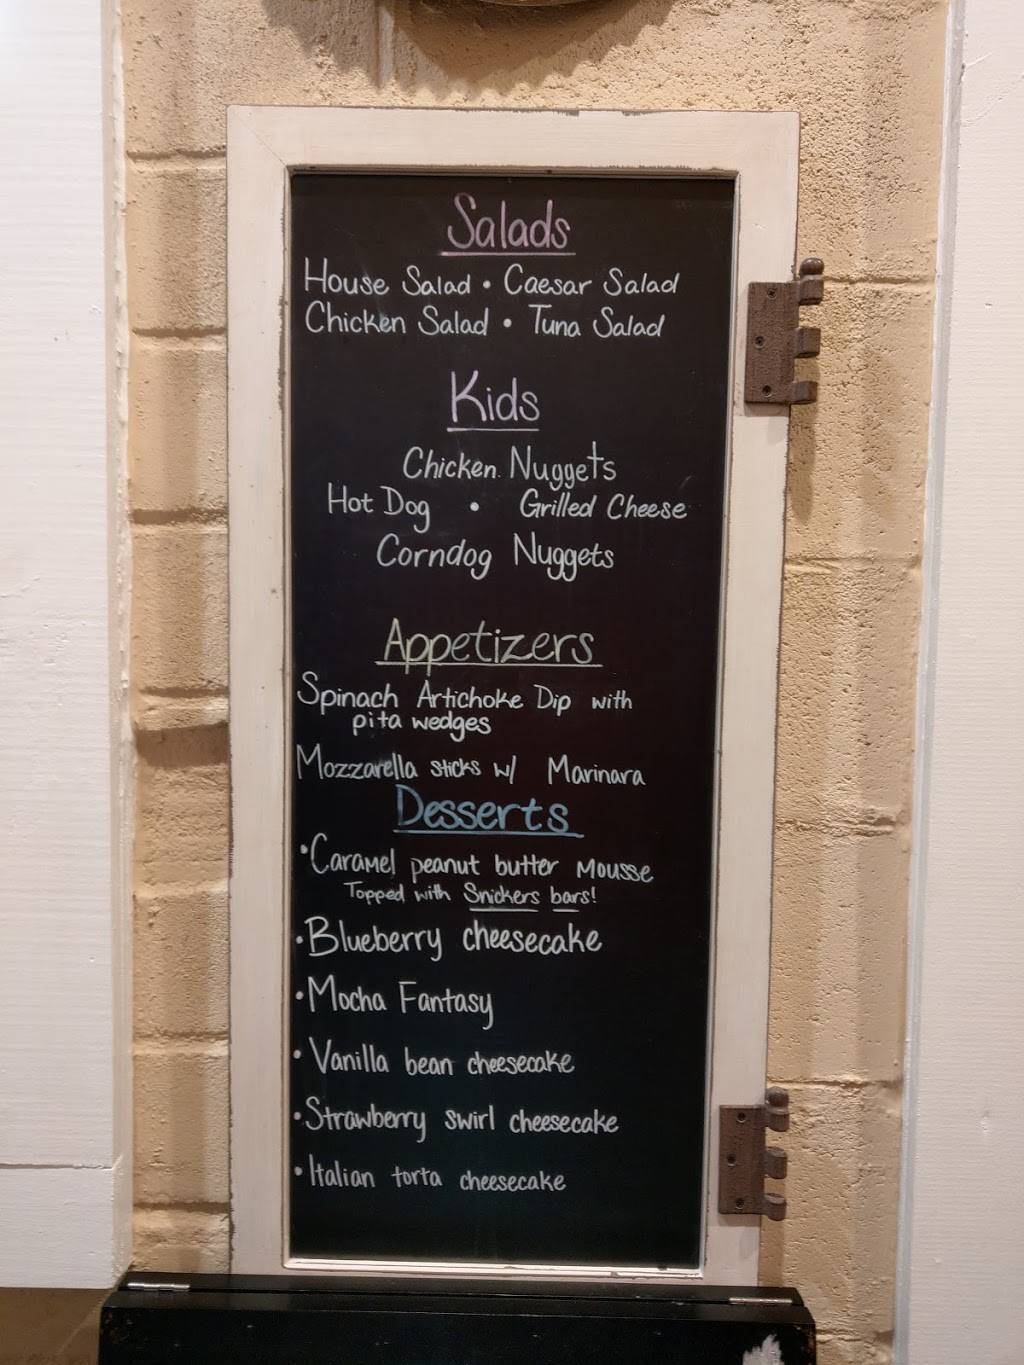 Salads
House Salad • Caesar Salad
Chicken Salad • Tuna Salad
Kids
Chicken Nuggets
Hot Dog • Grilled Cheese
Corndog Nuggets
Appetizers
Spinach Artichoke Dip with
pita wedges
Mozzarella sticks w/ Marinara
Desserts
•Caramel peanut butter mousse
Topped with Snickers bars!
•Blueberry cheesecake
•Mocha Fantasy
•Vanilla bean cheesecake
•Strawberry swirl cheesecake
•Italian torta cheesecake